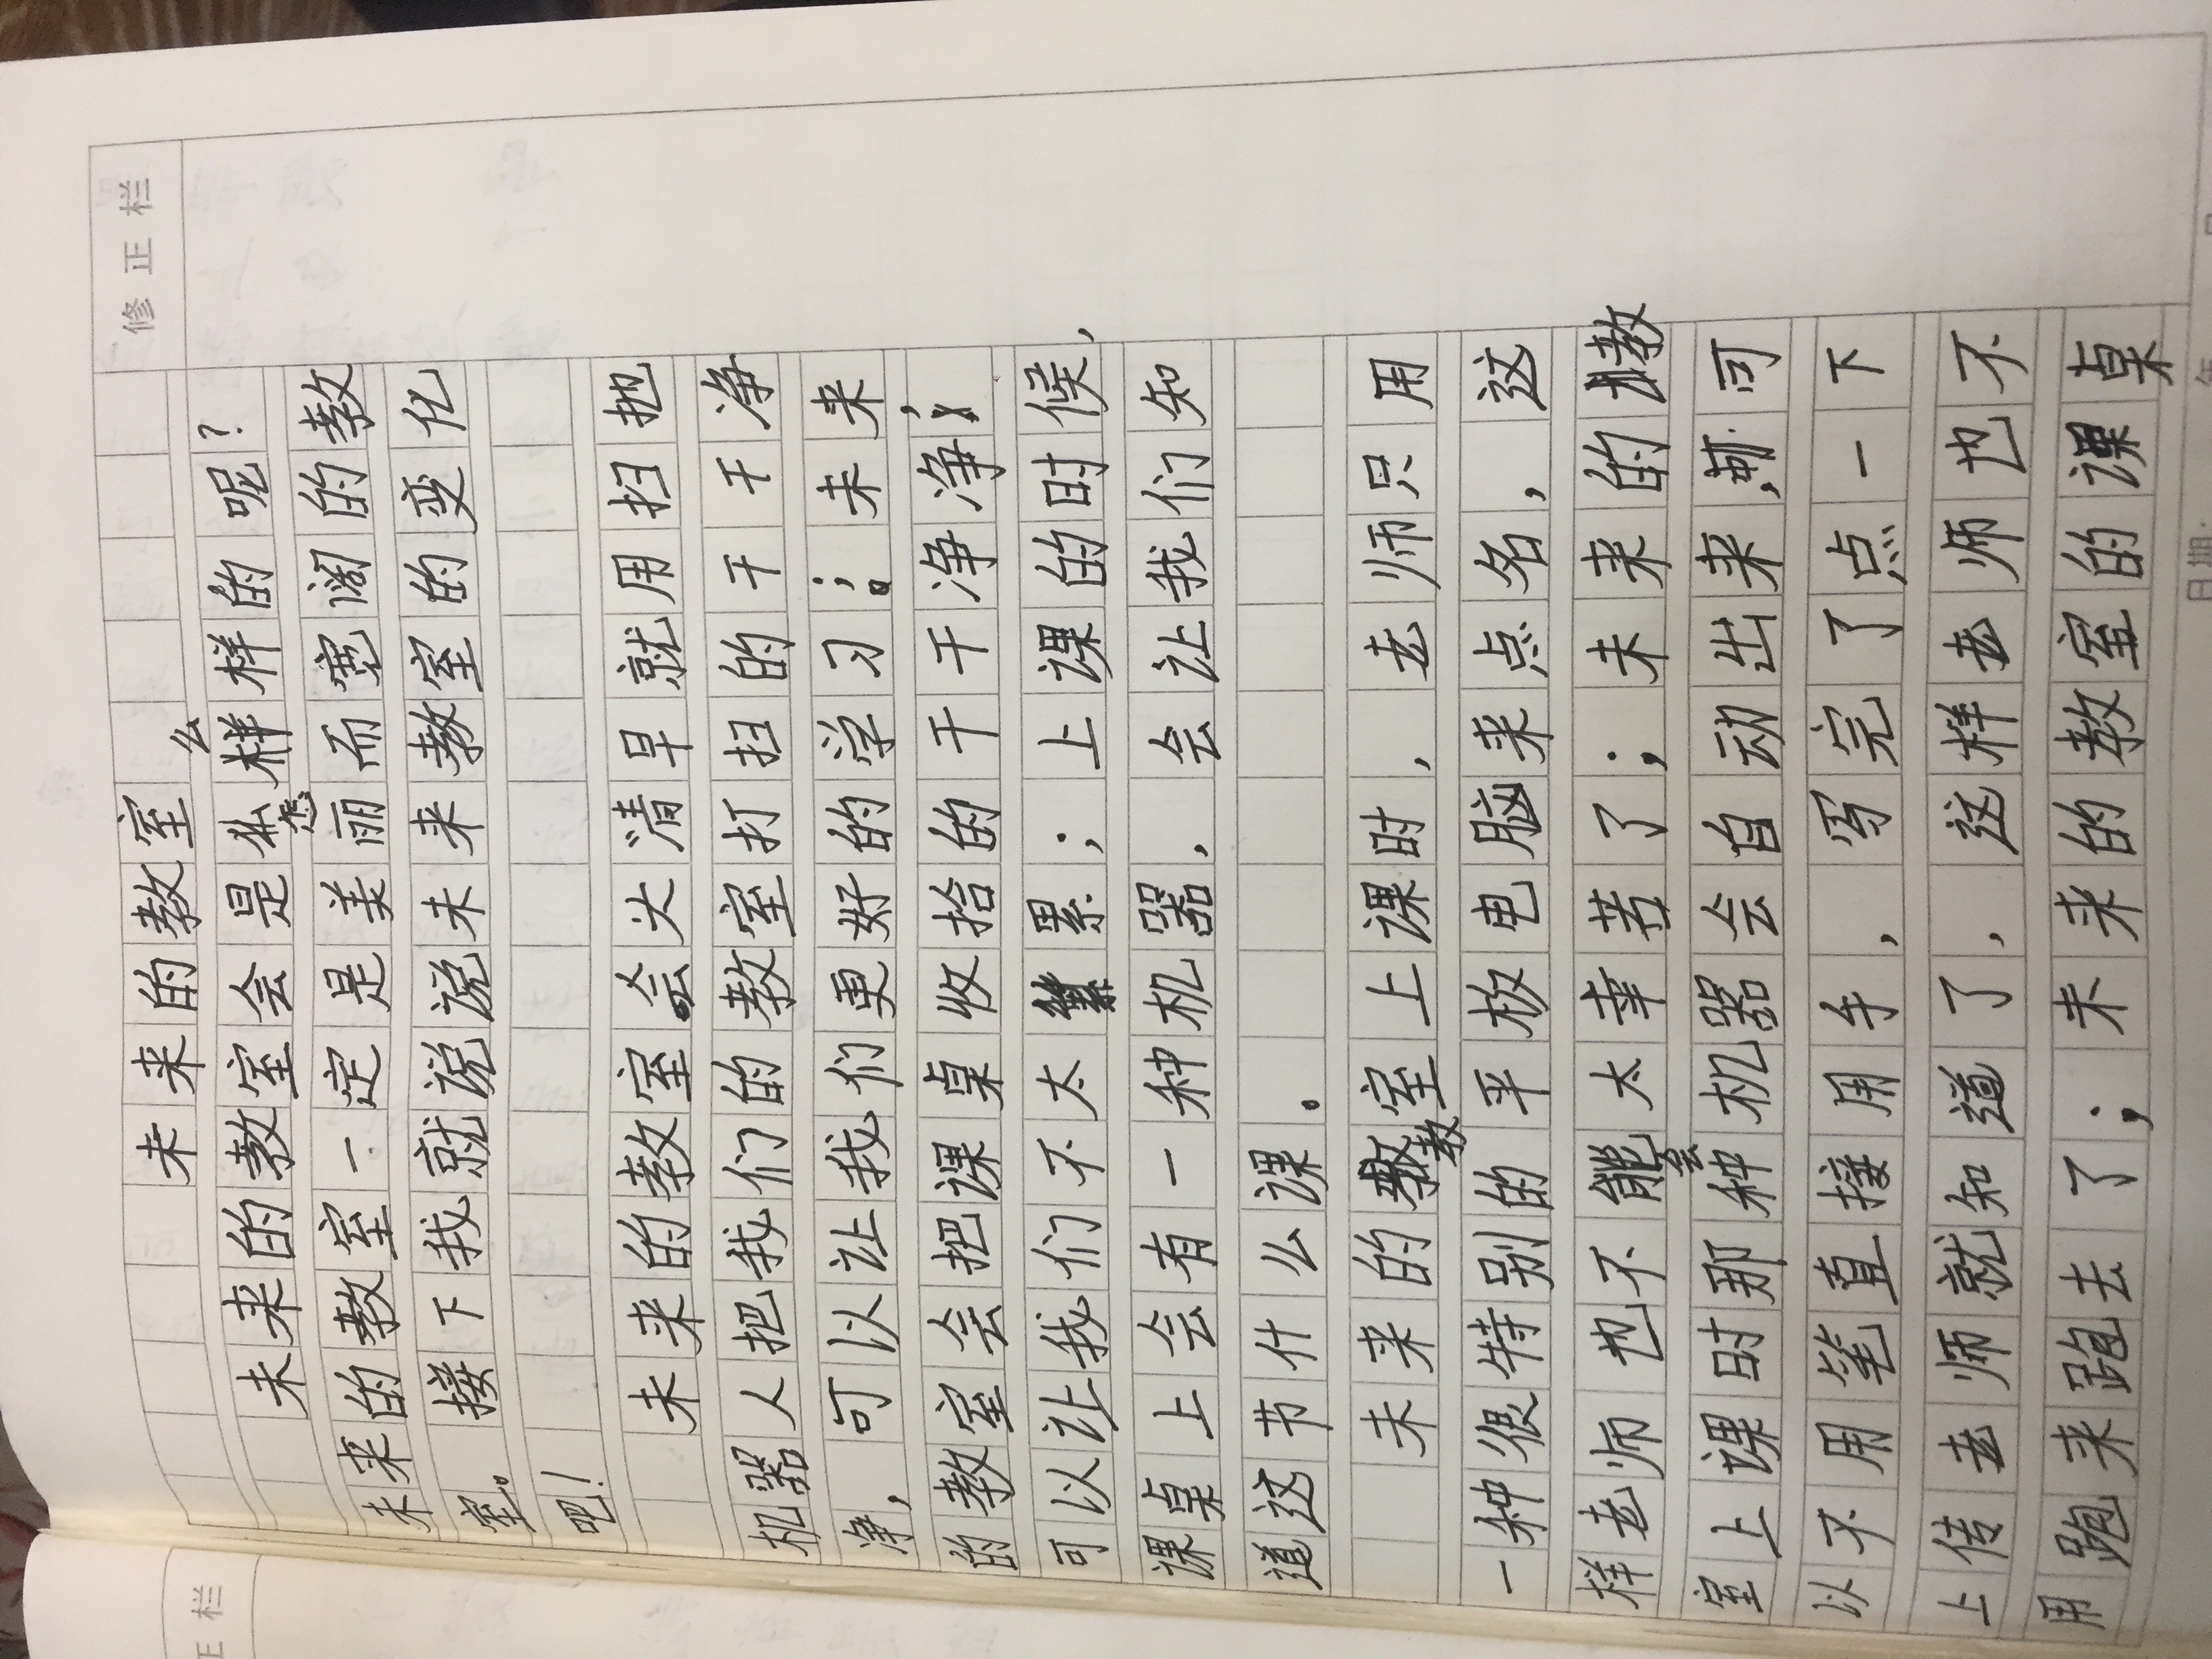 修正栏
未来的教室
未来的教室会是怎么样的呢？
未来的教室一定是美丽而宽阔的教
室。接下我就说说未来教室的变化
吧！
未来的教室会大清早就用扫把
机器人把我们的教室打扫的干干净
净，可以让我们更好的学习；未来
的教室会把课桌收拾的干干净净；
可以让我们不太累；上课的时候，
课桌上会有一种机器，会让我们知
道这节什么课。
未来的教室上课时，老师只用
一种很特别的平板电脑来点名，这
样老师也不会太辛苦了；未来的教
室上课时那种机器会自动出来，可
以不用笔直接用手，写完了点一下
上传老师就知道了，这样老师也不
用跑来跑去了；未来的教室的课桌
日期：年 月
正栏